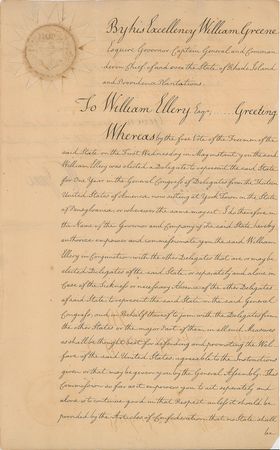 By his Excellency William Greene
Esquire Governor Captain General and Comman
der in Chief of and over the State of Rhode Island
and Providence Plantations.
To William Ellery Esqr. ..... Greeting
Whereas by the free Vote of the Freemen of the
said State on the First Wednesday in May instant you the said
William Ellery was elected a Delegate to represent the said State
for One Year in the General Congress of Delegates from the Thirteen
United States of America now sitting at York Town in the State
of Pennsylvania, or wherever the same may set I do therefore in
the Name of the Governor and Company of the said State hereby
authorize empower and commissionate you the said William
Ellery in Conjunction with the other Delegates that are or may be
elected Delegates of the said State or separately and alone in
Case of the Sickness or necessary Absence of the other Delegates
of said State to represent the said State in the said General
Congress, and in Behalf thereof to join with the Delegates from
the other States or the major Part of them in all such Measures
as shall be thought best for defending and promoting the Wel
fare of the said United States agreeable to the Instructions
given or that may be given you by the General Assembly: This
Commission so far as it empowers you to act separately and
alone is to continue good in that Respect unless it should be
provided by the Articles of Confederation that no State shall
be